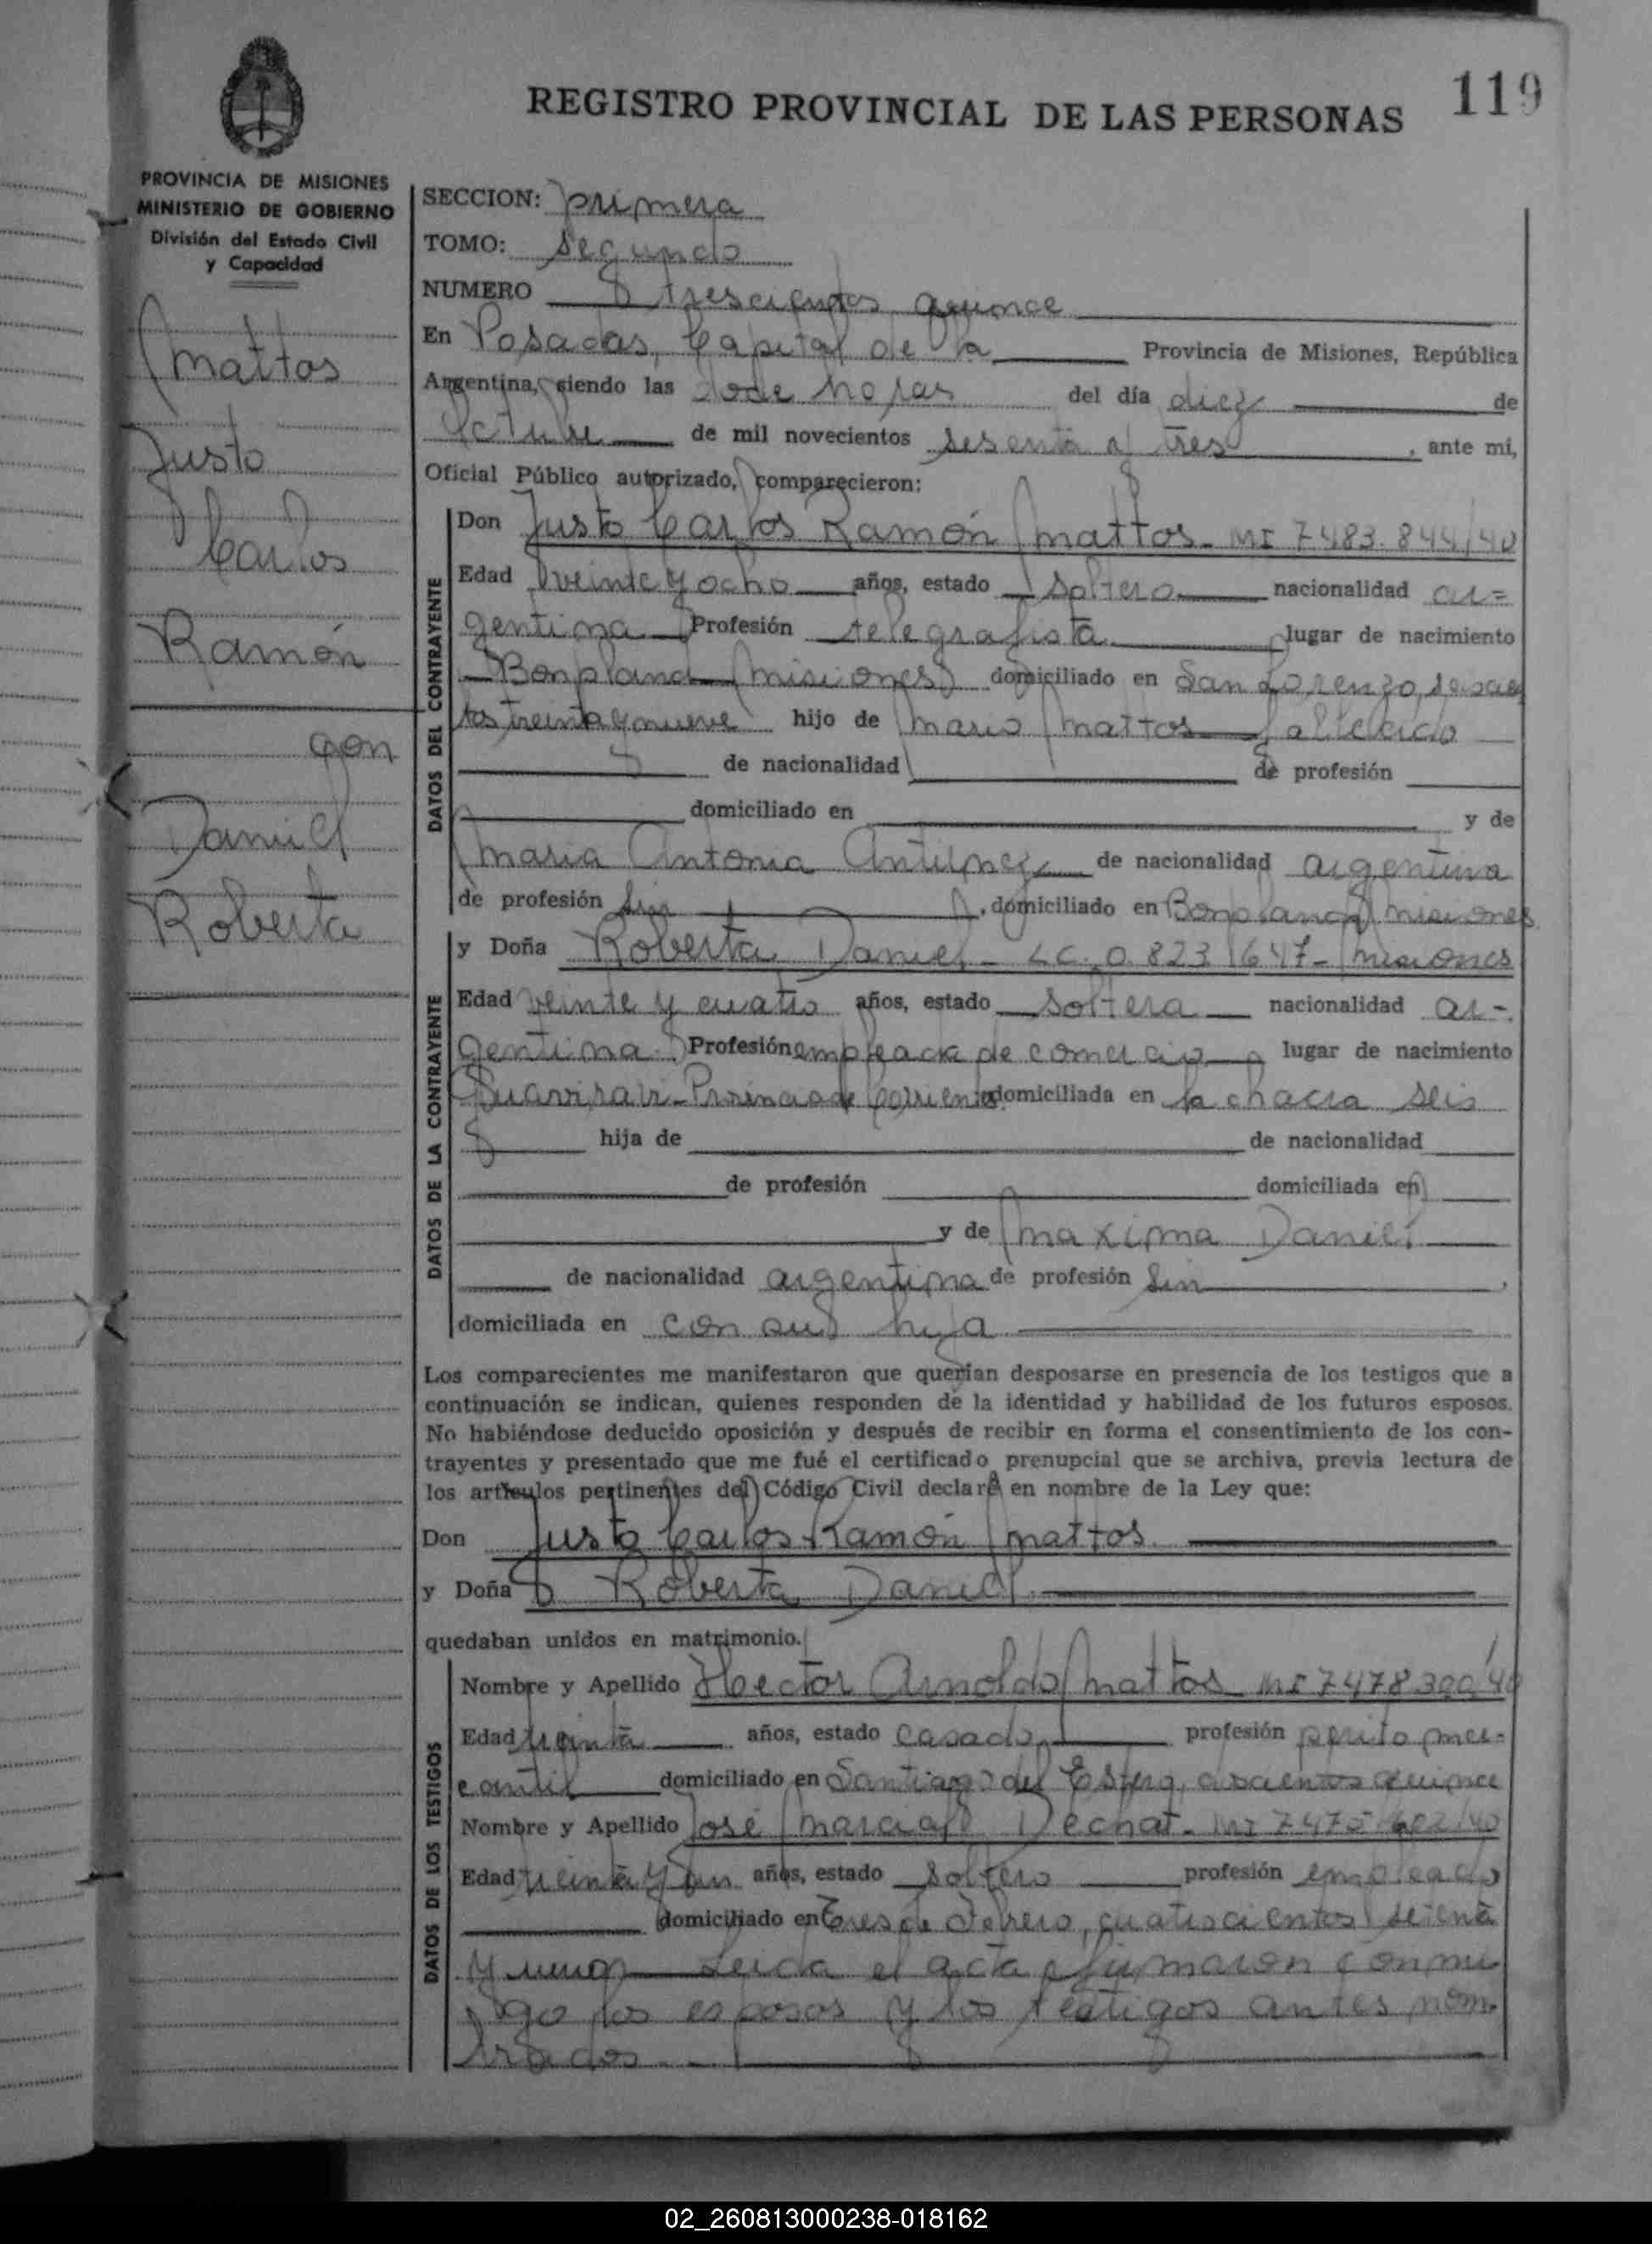 REGISTRO PROVINCIAL DE LAS PERSONAS 119
PROVINCIA DE MISIONES
MINISTERIO DE GOBIERNO
División del Estado Civil
y Capacidad
Mattos
Justo
Carlos
Ramón
con
Daniel
Roberta
SECCION: primera
TOMO: segundo
NUMERO trescientos quince
En Posadas, Capital de la Provincia de Misiones, República
Argentina, siendo las doce horas del día diez de
Octubre de mil novecientos sesenta y tres, ante mi,
Oficial Público autorizado, comparecieron:
DATOS DEL CONTRAYENTE
Don Justo Carlos Ramón Mattos - MI 7.483.844/40
Edad veinte y ocho años, estado soltero nacionalidad ar=
gentina Profesión telegrafista lugar de nacimiento
Bonpland Misiones domiciliado en San Lorenzo,
treinta y nueve hijo de Mario Mattos fallecido
de nacionalidad de profesión
domiciliado en y de
Maria Antonia de nacionalidad argentina
de profesión sin, domiciliado en Bonpland Misiones
DATOS DE LA CONTRAYENTE
y Doña Roberta Daniel - LC. 0.823.647 - Misiones
Edad veinte y cuatro años, estado soltera nacionalidad ar-
gentina Profesión empleada de comercio lugar de nacimiento
Provincia de Corrientes domiciliada en la chacra seis
hija de de nacionalidad
de profesión domiciliada en
y de Maxima Daniel
de nacionalidad argentina de profesión sin,
domiciliada en con su hija
Los comparecientes me manifestaron que querían desposarse en presencia de los testigos que a
continuación se indican, quienes responden de la identidad y habilidad de los futuros esposos.
No habiéndose deducido oposición y después de recibir en forma el consentimiento de los con-
trayentes y presentado que me fué el certificado prenupcial que se archiva, previa lectura de
los artículos pertinentes del Código Civil declaré en nombre de la Ley que:
Don Justo Carlos Ramón Mattos
y Doña Roberta Daniel
quedaban unidos en matrimonio.
DATOS DE LOS TESTIGOS
Nombre y Apellido Hector Arnoldo Mattos MI
Edad treinta años, estado casado profesión perito mer-
cantil domiciliado en Santiago del Estero, quince
Nombre y Apellido José Marcial Dechat - MI
Edad treinta y un años, estado soltero profesión empleado
domiciliado en Tres de Febrero, cuatrocientos setenta
y uno Leida el acta firmaron conmi
go los esposos y los testigos antes nom-
brados.
02_260813000238-018162